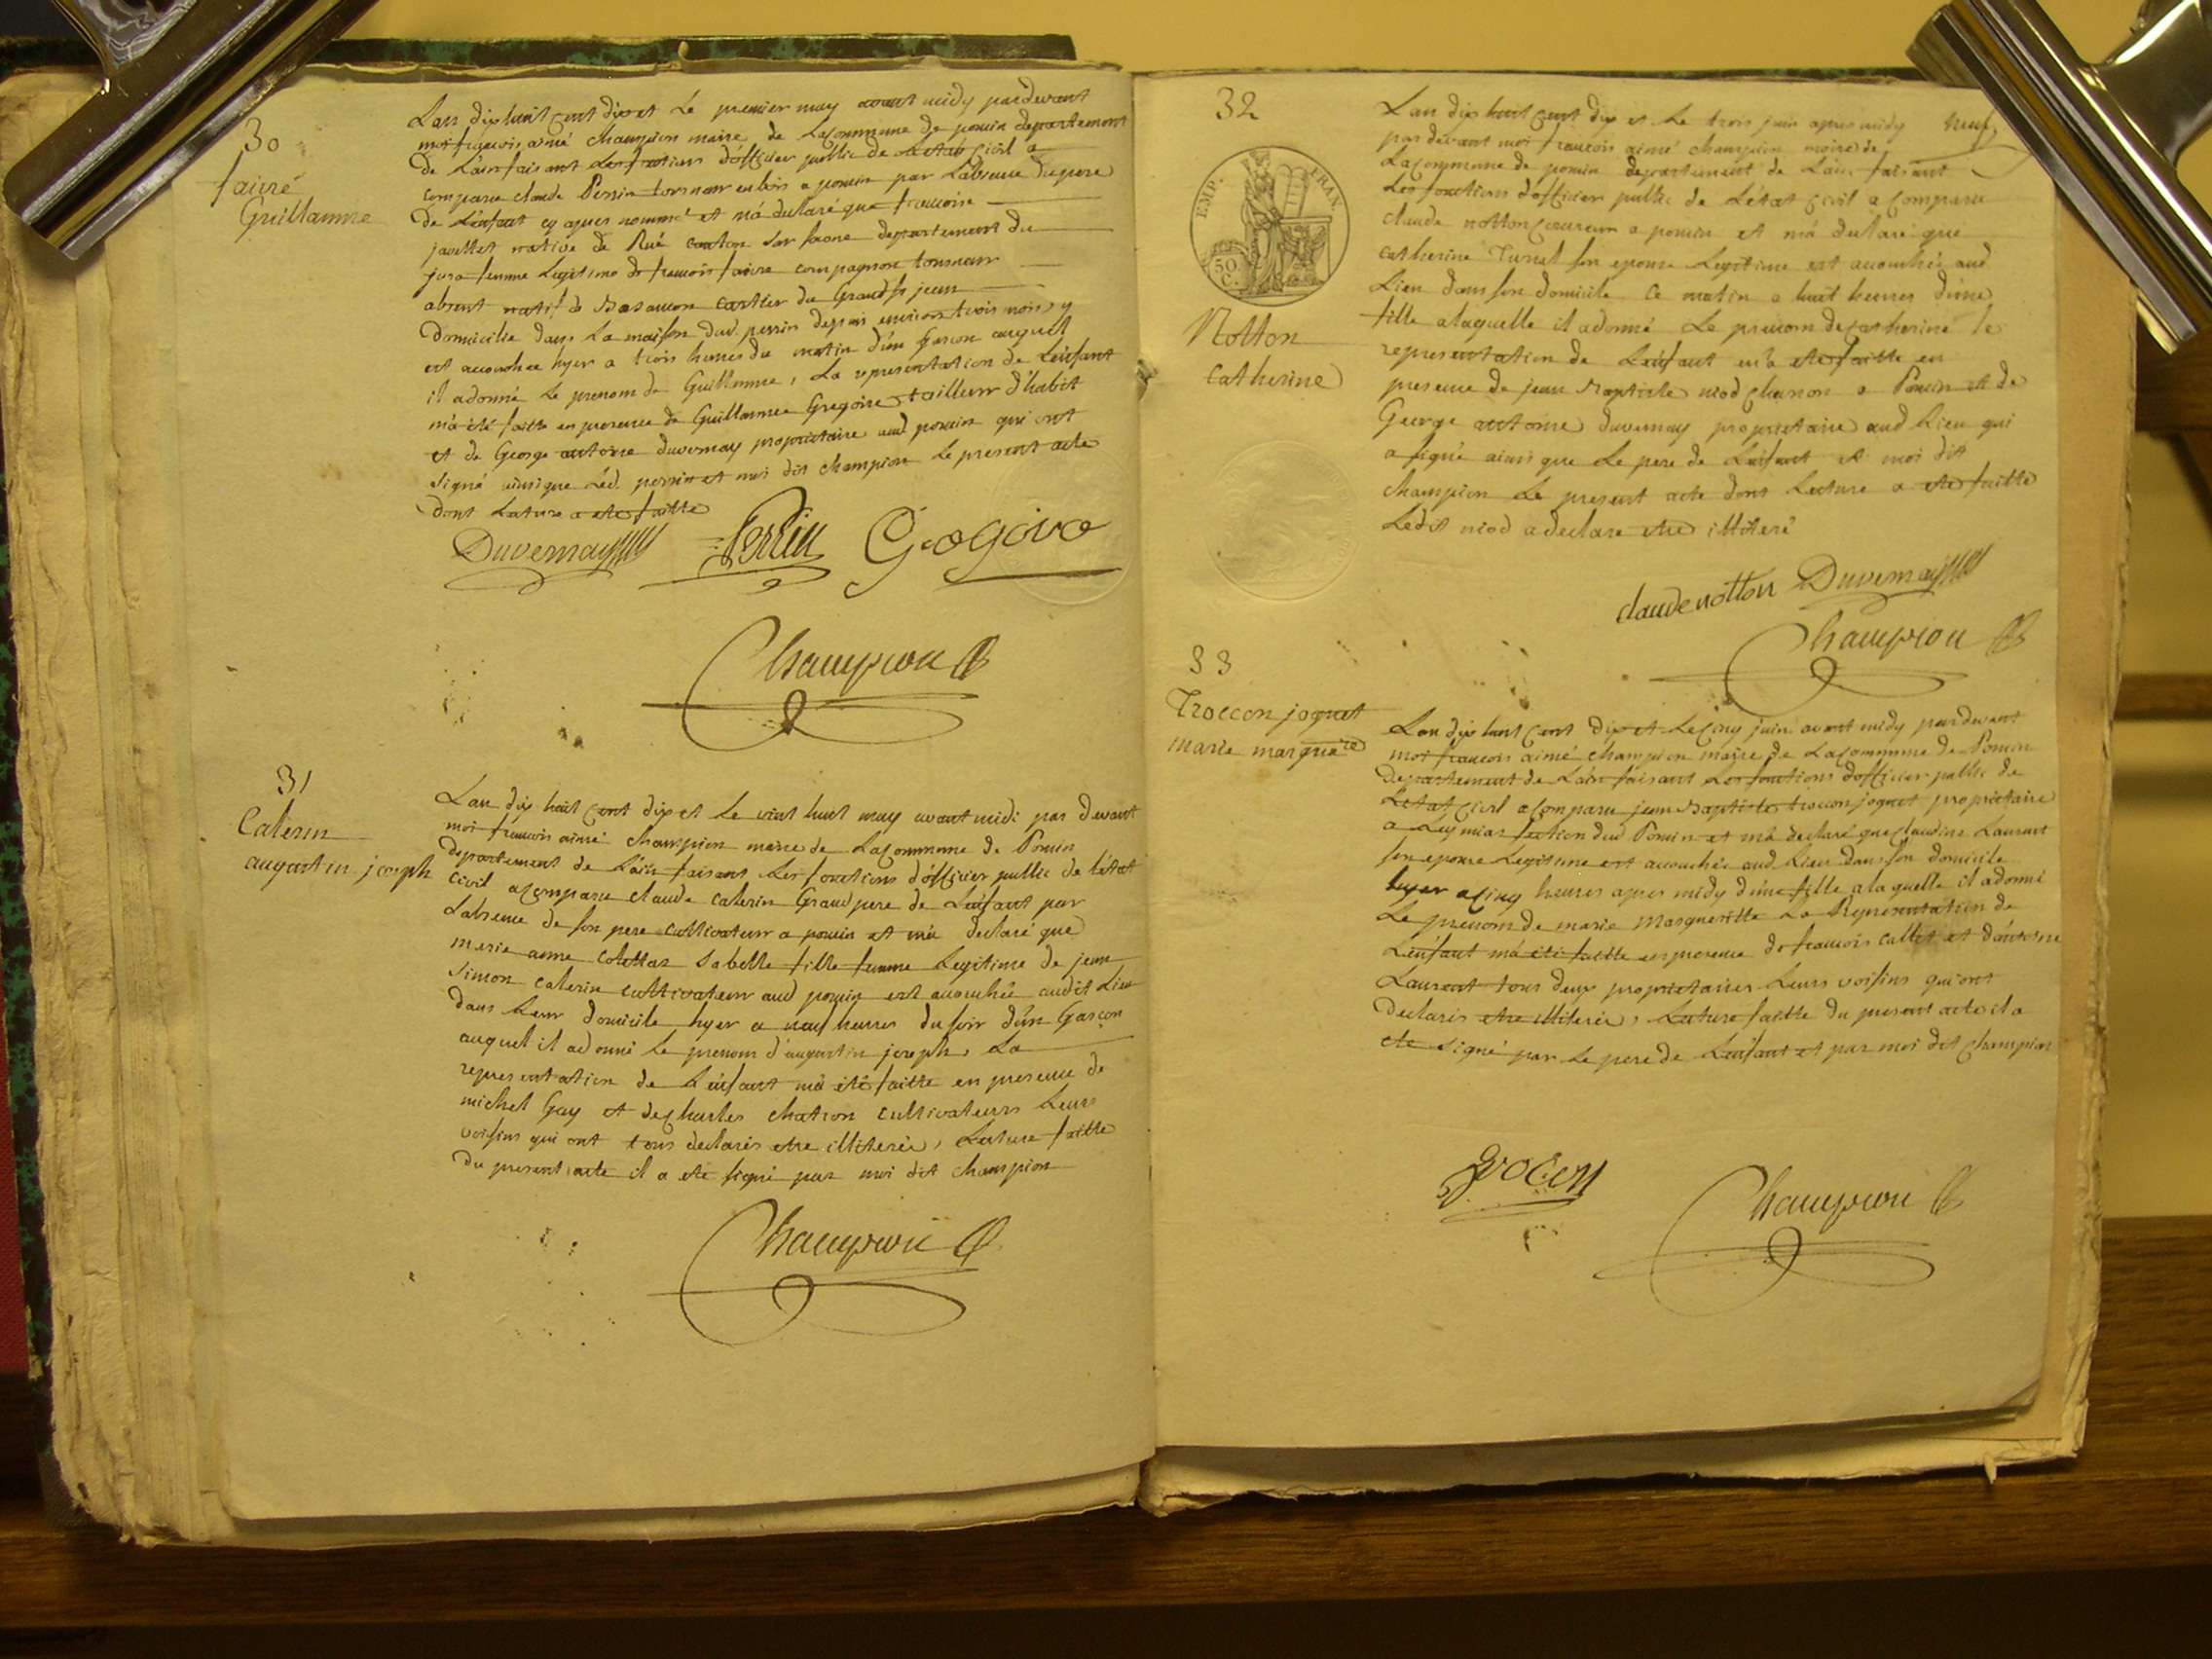 30
fairé
Guillaume
Lan dix huit cent dix et le premier may avant midy pardevant
moi francois aimé champion maire de Lacommune de poncin departement
de L'ain faisant Les fontions d'officier public de Letat civil a
comparu claude Perrin tourneur en bois a poncin par Labsence du pere
de L'enfant cy apres nommé et m'a declaré que francoise
javillet native de Rué canton sur saone departement du
jura femme Legitime de francois faivre compagnon tourneur
absent natif de Basancon cartier du Grand St jean
domicilie dans La maison dud. perrin depuis environ trois mois y
est accouchee hyer a trois heures du matin d'un garcon auquel
il adonné Le prenom de Guillaume, La representation de L'enfant
m'a été faitte en presence de Guillaume Gregoire tailleur d'habit
et de George antoine duvernay proprietaire aud poncin qui ont
signé ainsi que Led. perrin et moi dit champion Le present acte
dont Lecture a ete faitte
Duvernay Perrin Gregoire
Champion
31
Caterin
augustin joseph
Lan dix huit cent dix et le vint huit may avant midi par devant
moi francois aimé champion maire de Lacommune de Poncin
departement de L'ain faisant Les fonctions d'officier public de L'etat
civil a comparu claude caterin Grand pere de L'enfant par
Labsence de son pere cultivateur a poncin et m'a declaré que
marie anne colettas Isabelle fille femme Legitime de jean
simon caterin cultivateur aud poncin est accouchée audit Lieu
dans Leur domicile hyer a neuf heures du soir d'un Garcon
auquel il adonné le prenom d'augustin joseph, La
representation de L'enfant m'a été faitte en presence de
michel Gay et de charles chatron cultivateurs Leurs
voisins qui ont tous declarés etre illiterés, Lecture faitte
du present acte il a ete signé par moi dit champion
Champion
32
EMP. FRAN.
50 C.
Notton
catherine
neuf
Lan dix huit cent dix et Le trois juin apres midy
par devant moi francois aimé champion maire de
Lacommune de poncin departement de L'ain faisant
Les fonctions d'officier public de L'état civil a comparu
claude notton a poncin et m'a declaré que
catherine Turnel son epouse Legitime est accouchée aud
Lieu dans son domicile ce matin a huit heures d'une
fille alaquelle il adonné Le prenom de catherine la
representation de L'enfant m'a ete faitte en
presence de jean Baptiste niod charron a Poncin et de
George antoine duvernay proprietaire aud Lieu qui
a signé ainsi que Le pere de L'enfant et moi dit
champion Le present acte dont Lecture a ete faitte
Ledit niod a declare etre illiteré
claude notton Duvernay
Champion
33
Troccon joquet
marie margueite
Lan dix huit cent dix et Le cinq juin avant midy pardevant
moi francois aimé champion maire de Lacommune de Poncin
departement de L'ain faisant Les fonctions d'officier public de
L'etat civil a comparu jean Baptiste troccon joquet proprietaire
a Leymiat section dud Poncin et m'a declaré que claudine Laurent
son epouse Legitime est accouchée aud Lieu dans son domicile
hyer a cinq heures apres midy d'une fille a laquelle il adonné
Le prenom de marie Margueritte La Representation de
L'enfant m'a eté faitte en presence de francois callet et d'antoine
Laurent tous deux proprietaires Leurs voisins qui ont
declarés etre illiterés, Lecture faitte du present acte il a
ete signé par Le pere de L'enfant et par moi dit champion
Trocon
Champion